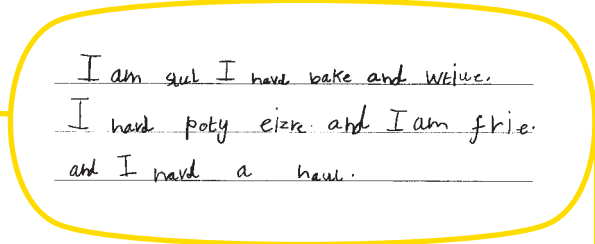 I am slul I havd bake and wtiue.
I hard poty eizre. and I am frie.
and I havd a haul.